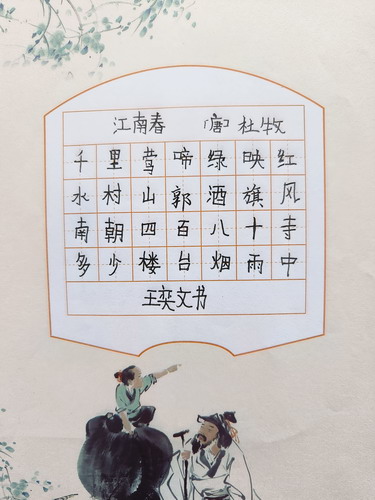 江南春 「唐」杜牧
千里莺啼绿映红
水村山郭酒旗风
南朝四百八十寺
多少楼台烟雨中
王奕文书